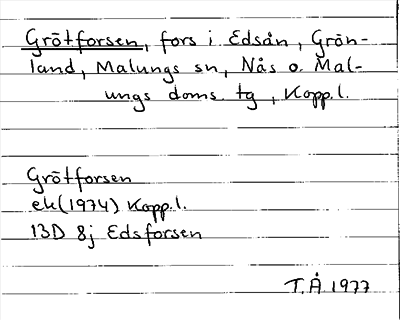 Grötforsen, fors i Edsån, Grön-
land, Malungs sn, Nås o. Mal-
ungs doms. tg, Kopp.l.
Grötforsen
ek(1974) Kopp.l.
13D 8j Edsforsen
T.Å 1977